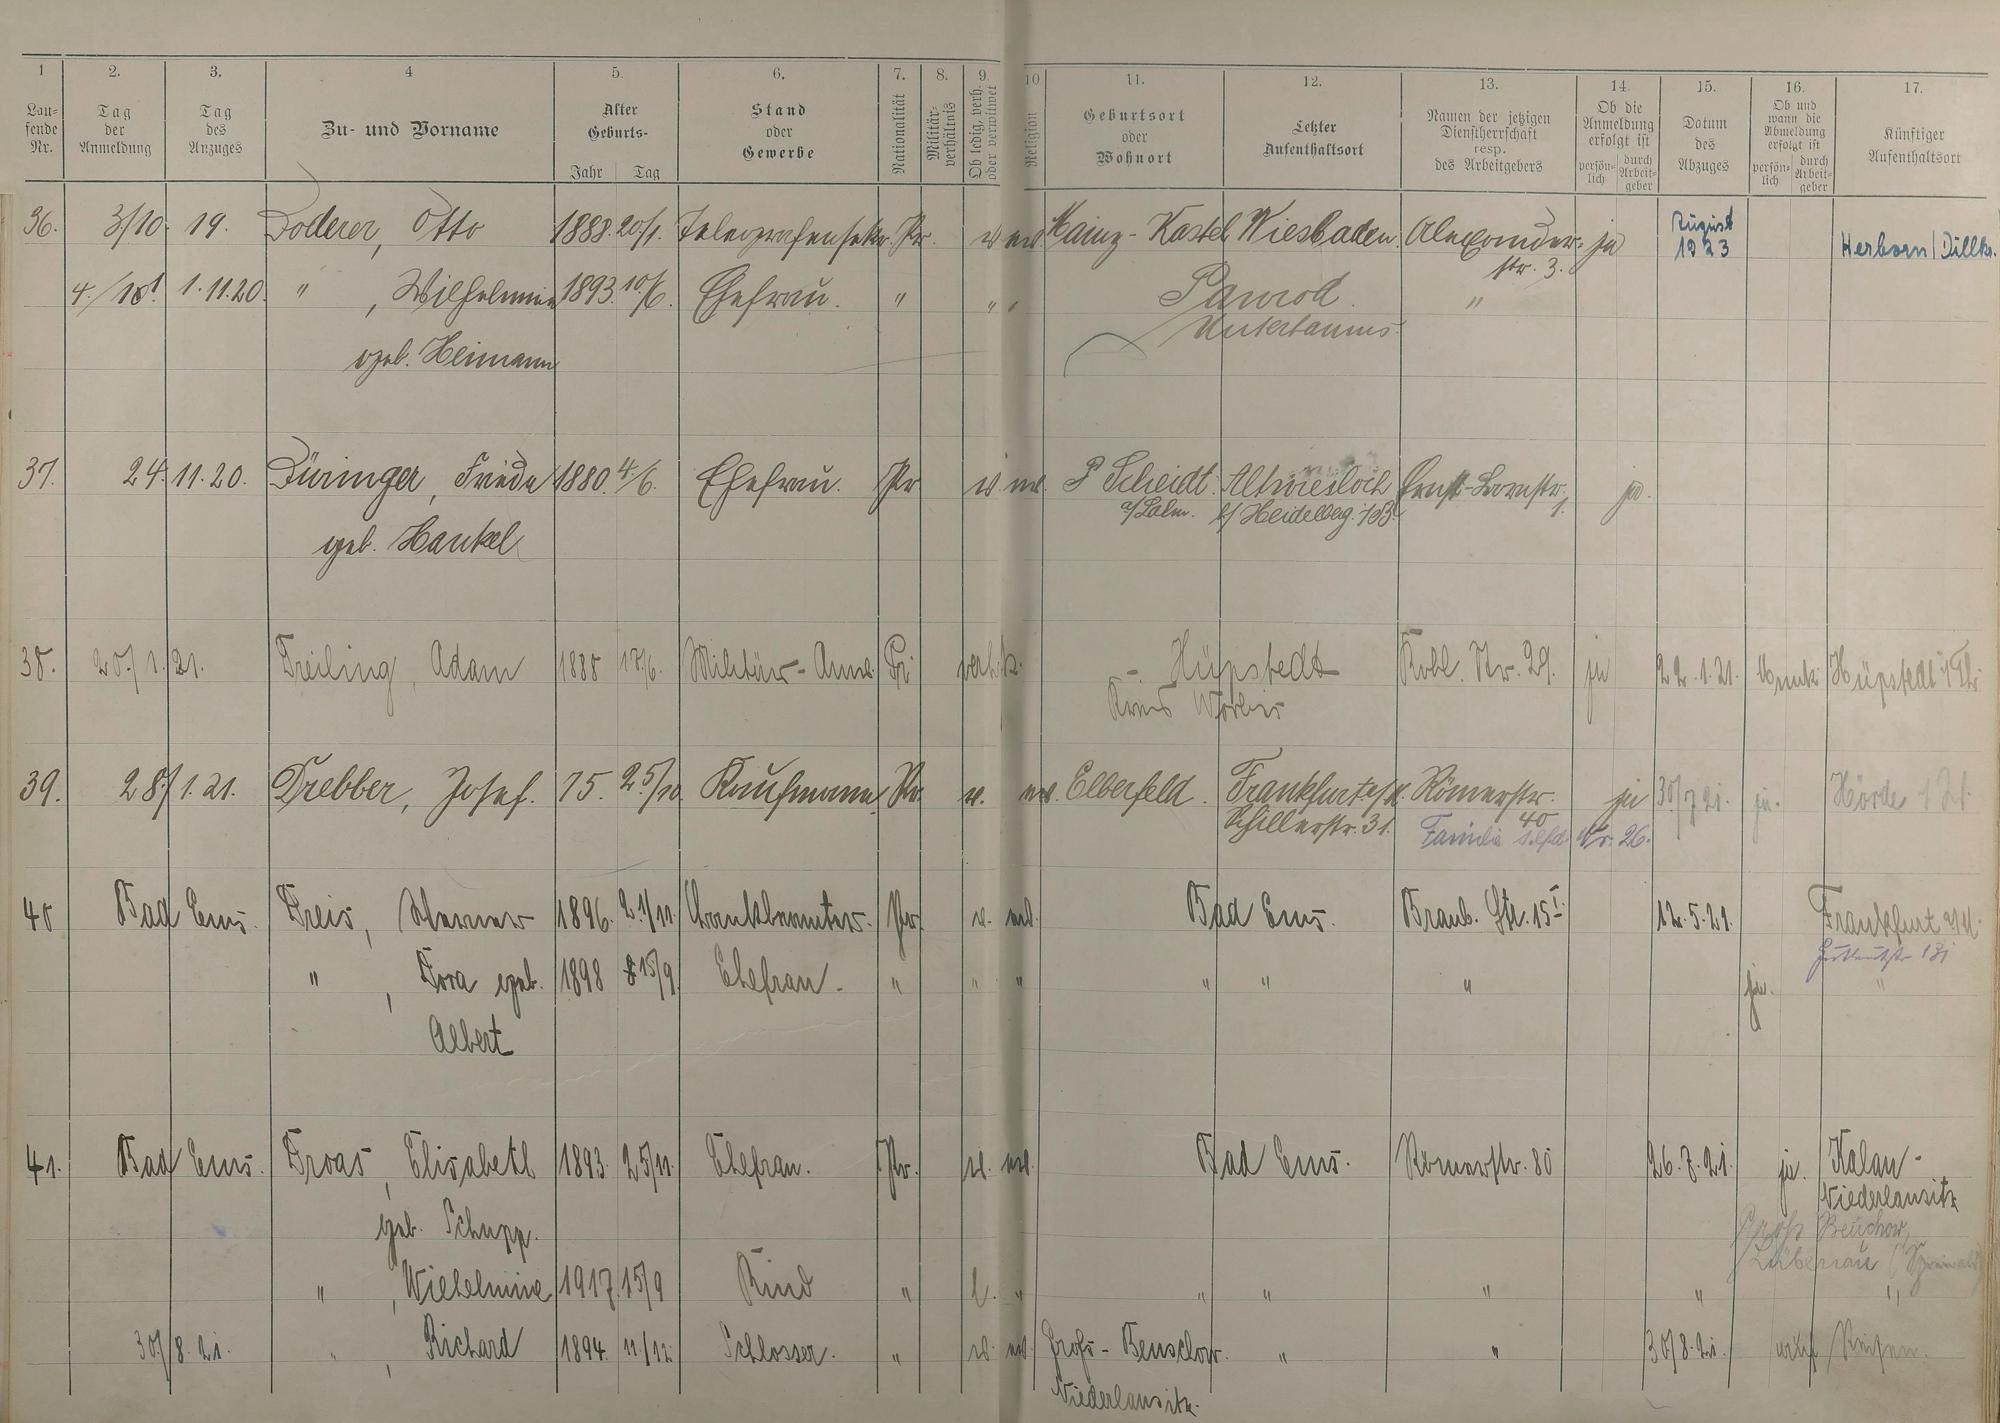 1 2. 3. 4 5. 6. 7. 8. 9. 10 11. 12. 13. 14. 15. 16. 17.
Lau-
fende
Nr.
Tag
der
Anmeldung
Tag
des
Anzuges
Zu- und Vorname
Alter
Geburts-
Jahr Tag
Stand
oder
Gewerbe
Nationalität
Militär-
verhältnis
Ob ledig, verh.
oder verwitwet
Religion
Geburtsort
oder
Wohnort
Letzter
Aufenthaltsort
Namen der jetzigen
Dienstherrschaft
resp.
des Arbeitgebers
Ob die
Anmeldung
erfolgt ist
persön-
lich
durch
Arbeit-
geber
Datum
des
Abzuges
Ob und
wann die
Abmeldung
erfolgt ist
persön-
lich
durch
Arbeit-
geber
Künftiger
Aufenthaltsort
36. 3/10. 19. Doderer, Otto 1888. 20/1. Pr. Mainz-Kastel Wiesbaden. Alexander- ja August Herborn/Dillkr.
str. 3. 1923
1.11.20. " , Wilhelmine 1893. 10/6. Ehefrau. " " " Panrod "
geb. Heimann Untertaunus.
37. 24. 11. 20. Düringer, Frieda 1880. 4/6. Ehefrau. Pr Scheidt Altwiesloch ja.
geb. Hankel a/Lalm. b/Heidelberg
38. 20./1. 21. Dreiling, Adam 1888 Militär- Hüpstedt Nr. 29. ja 22.1.21. Hüpstedt
Kreis Worbis
39. 28./1.21. Drebber, Josef. 75. 25/10. Kaufmann Pr. Elberfeld. Frankfurt a/M. Römerstr. ja 30/7 21. ja. Hörde
Schillerstr. 31. 40
Familie Nr. 26.
40 Bad Ems. Dreis, Werner 1896. 21/11. Pr. Bad Ems. Braub. Str. 15 12.5.21. Frankfurt a/M.
" , Dora geb. 1898 15/9 Ehefrau. " " " " " " ja. "
Albert
41. Bad Ems. Droas, Elisabeth 1893. 25/11. Ehefrau. Pr. Bad Ems. Römerstr. 80 26.7.21. ja. Kalau-
geb. Schupp. Niederlausitz
Lübenau
" , Wilhelmine 1917. 15/9 Kind " l. " " " " " "
30/8. 21. " , Richard 1894. 11/12. Schlosser. " Groß-Beuschow. " " 30/8.21.
Niederlausitz.